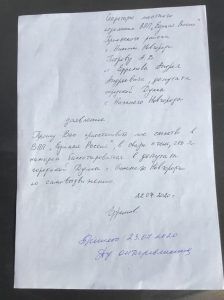 Секретарю местного
отделения ВПП "Единая Россия"
района
г. Нижнего Новгорода
А.В.
от Ефремова Андрея
Андреевича, депутата
городской Думы
г. Нижнего Новгорода
заявление.
Прошу Вас приостановить мое членство в
ВПП "Единая Россия", в связи с тем, что я
намерен баллотироваться в депутаты
городской Думы г. Нижнего Новгорода
по самовыдвижению.
22.07.2020г.
Принято 23.07.2020